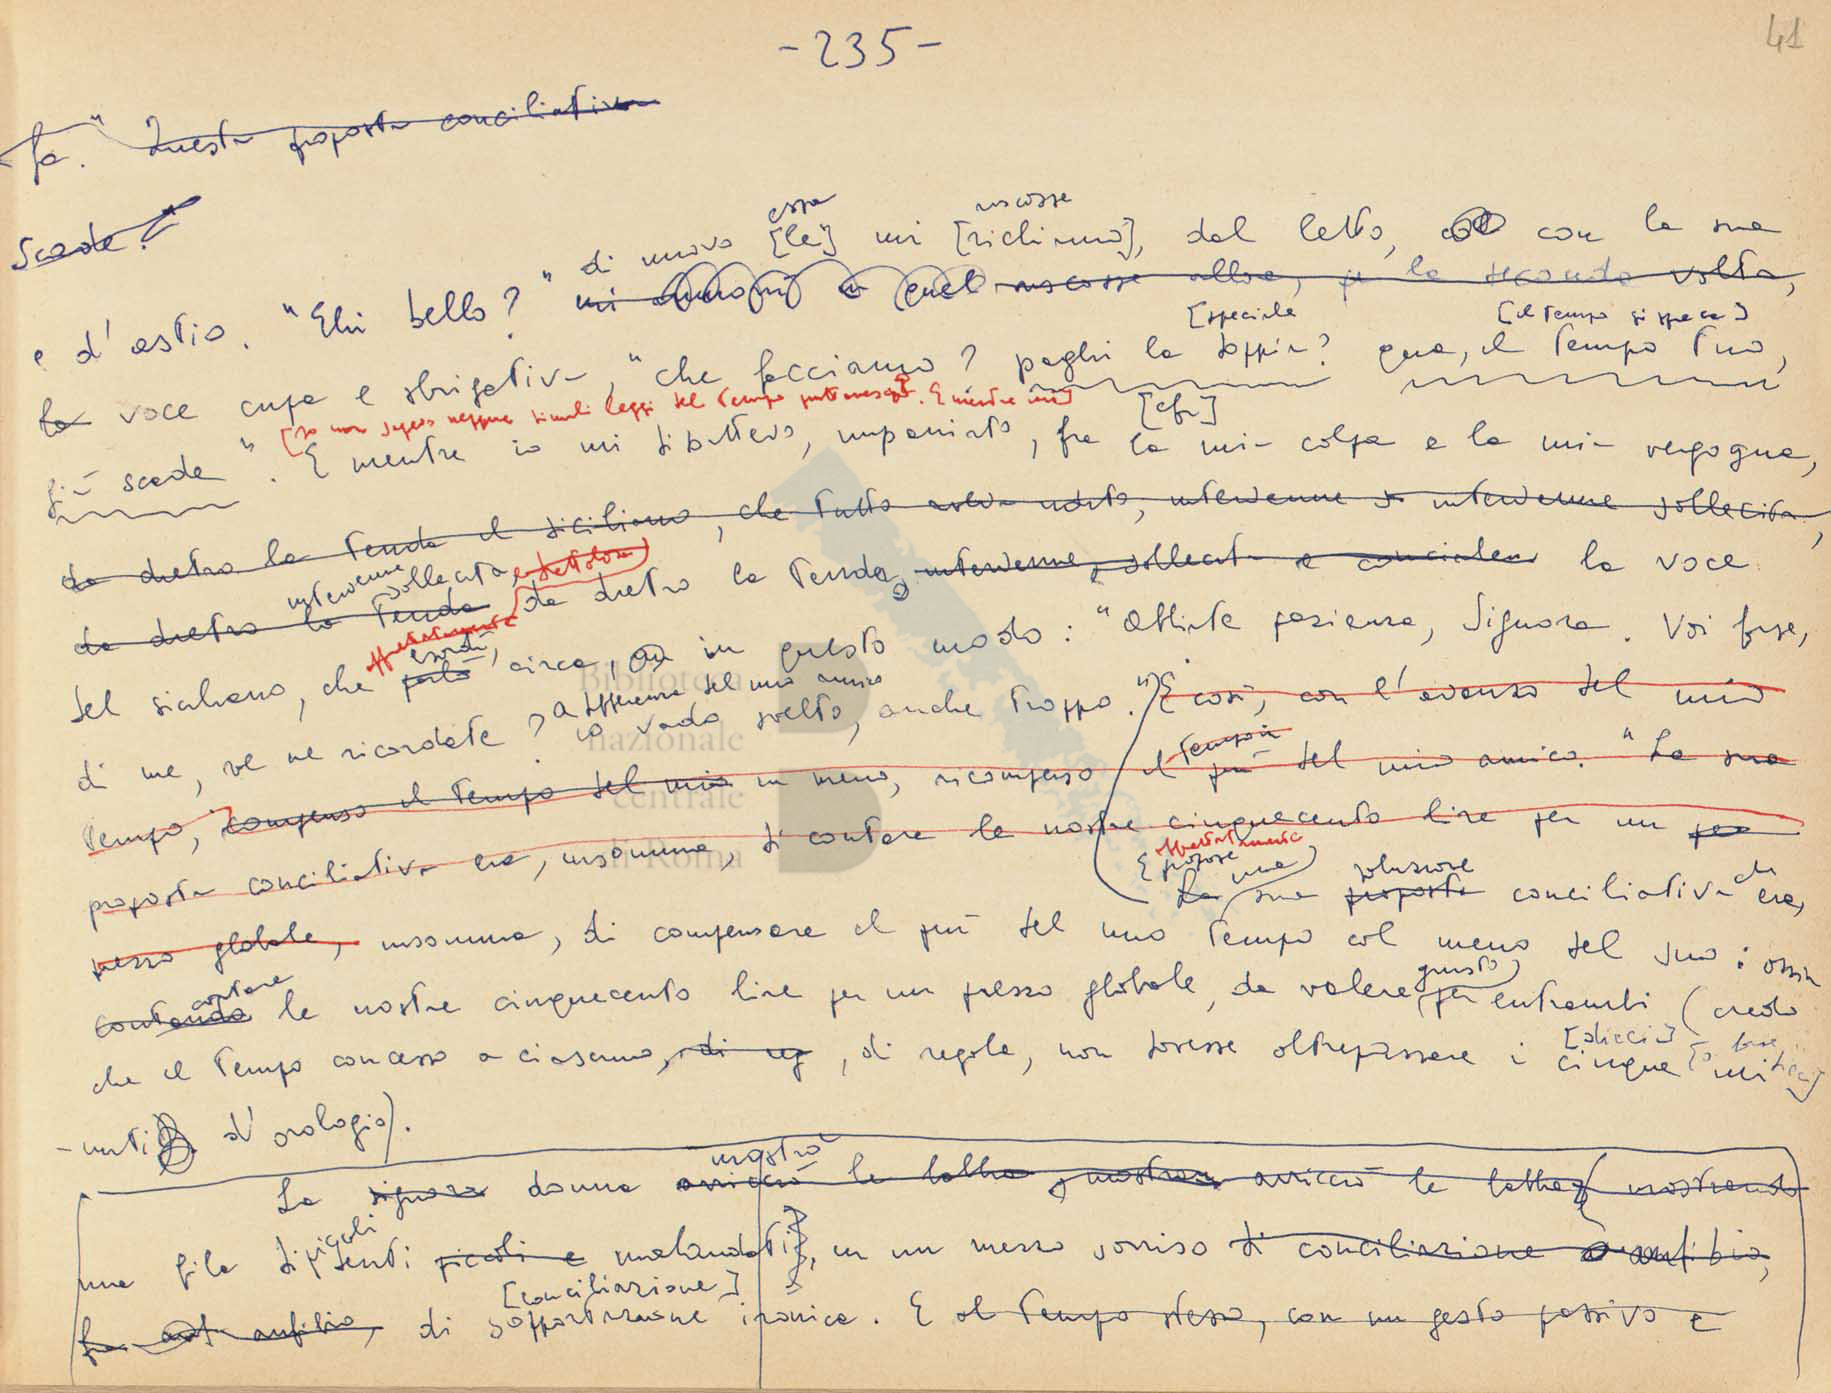 -235-
41
fa." Questa proposta conciliativa
scade."
essa riscosse
di nuovo [lei] mi [richiamò], dal letto, con la sua
e d'astio. "Ehi bello?" mi riscosse allora, per la seconda volta,
[speciale [il Tempo si spreca]
la voce cupa e sbrigativa, "che facciamo? paghi la doppia? qua, il Tempo tuo,
[io non sapevo neppure simili leggi del Tempo puttanesco. E mentre io] [cfr]
già scade". E mentre io mi dibattevo, impaniato, fra la mia colpa e la mia vergogna,
da dietro la tenda il siciliano, che tutto aveva udito, intervenne si intervenne sollecita,
intervenne sollecita e dettolosa
da dietro la tenda da dietro la tenda, intervenne, sollecita e la voce
affrettatamente esordì,
del siciliano, che parlò circa, in questo modo: "Abbiate pazienza, Signora. Voi forse,
a differenza del mio amico
di me, ve ne ricordate? io vado svelto, anche troppo." E così, con l'avanzo del mio
Tempo in
Tempo, compenso il Tempo del mio in meno, ricompenso il più del mio amico." La sua
proposta conciliativa era, insomma, di contare le nostre cinquecento lire per un
affrettatamente
E propose una soluzione che
La sua proposta conciliativa era,
prezzo globale, insomma, di compensare il più del mio Tempo col meno del suo: ossia
contare giusto
contando le nostre cinquecento lire per un prezzo globale, da valere per entrambi (credo
[dieci] o forse
che il Tempo concesso a ciascuno, di reg, di regola, non dovesse oltrepassare i cinque mi
-nuti d'orologio).
mostrò
La signora donna arricciò le labbra, mostrando arricciò le labbra mostrando
piccoli
una fila di denti piccoli e malandati, in un mezzo sorriso di conciliazione anfibia,
[conciliazione]
fra anfibia, di sopportazione ironica. E al tempo stesso, con un gesto passivo e